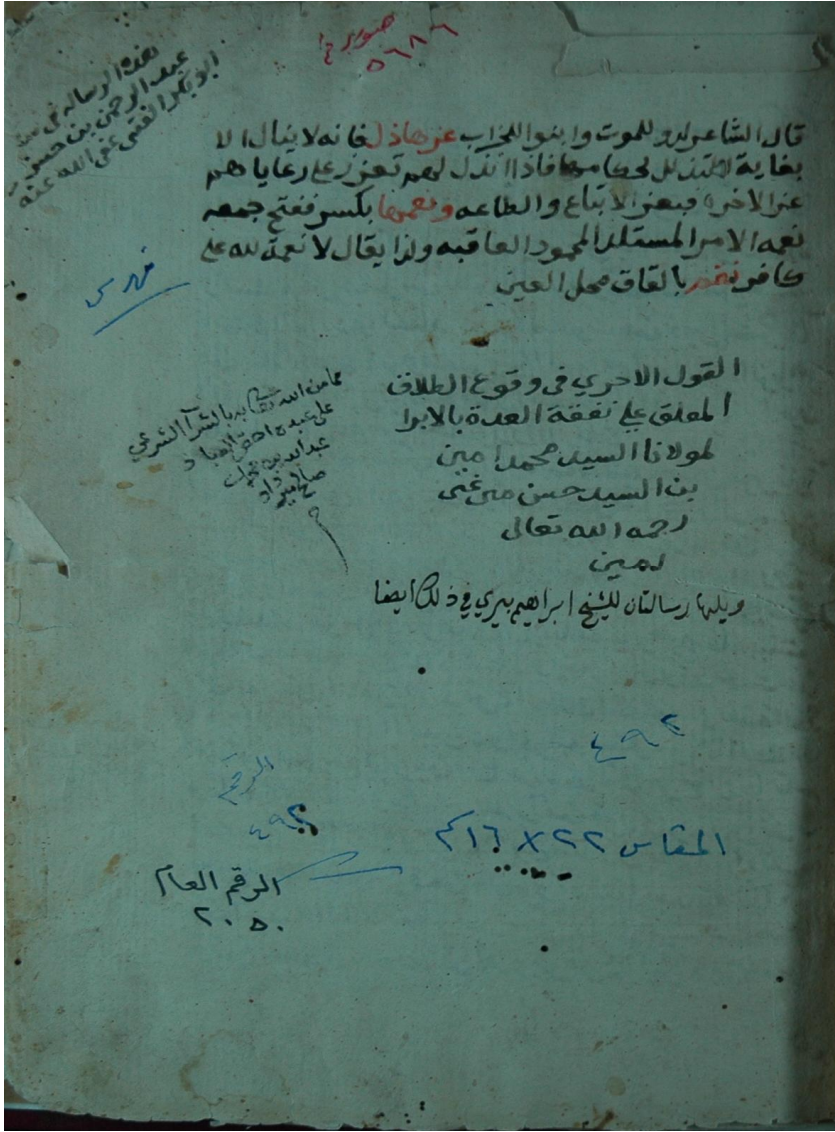 تصوير خ
٥٦٨٦
هذه الرسالة في
عبد الرحمن بن حسن
أبو بكر الفتني عفى الله عنه
قال الشاعر لدو للموت وابنوا للخراب عزها ذل فانه لا ينال الا
بغاية التذلل لحكامها فاذا انذل لهم تعزز على رعاياهم
عز الاخرة فبعز الاتباع والطاعه ونعمها بكسر ففتح جمعه
نعمه الامر المستلذ المحمود العاقبه ولذا يقال لا نعمة لله على
كافر نقم بالقاف محل العين
فهرس
القول الاحري في وقوع الطلاق
المعلق على نفقة العدة بالابرا
لمولانا السيد محمد امين
بن السيد حسن ميرغني
رحمه الله تعالى
امين
ويليها رسالتان للشيخ ابراهيم بيري في ذلك ايضا
مما من الله تعالى به بالشرآ الشرعي
على عبده احقر العباد
عبد الله بن محمد
صالح ميرداد
٤٩٢
الرقم
٤٩٢
المقاس ٢٢ × ١٦ سم
الرقم العام
٢٠٥٠